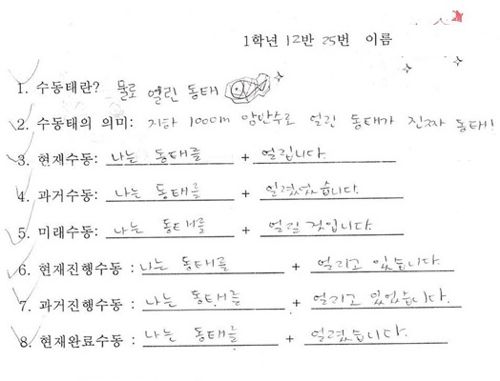 1학년 12반 25번 이름
1. 수동태란? 물로 얼린 동태
2. 수동태의 의미: 지하 100cm 암반수로 얼린 동태가 진짜 동태!
3. 현재수동: 나는 동태를 + 얼립니다.
4. 과거수동: 나는 동태를 + 얼렸었습니다.
5. 미래수동: 나는 동태를 + 얼릴 것입니다.
6. 현재진행수동 : 나는 동태를 + 얼리고 있습니다.
7. 과거진행수동 : 나는 동태를 + 얼리고 있었습니다.
8. 현재완료수동 : 나는 동태를 + 얼렸습니다.